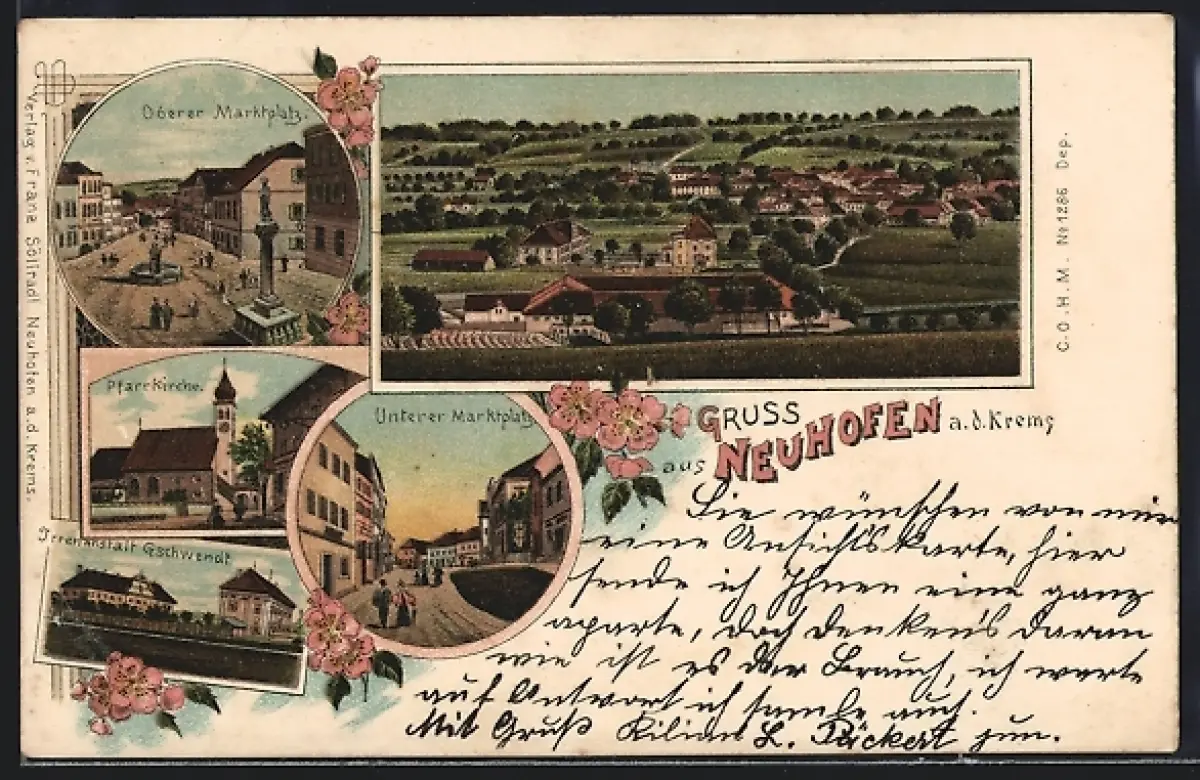 Oberer Marktplatz.
Pfarrkirche.
Unterer Marktplatz
Irrenanstalt Gschwendt
Verlag v. Franz Söllradl Neuhofen a.d. Krems.
C.O.H.M. No 1286 Dep.
GRUSS
aus NEUHOFEN a.d. Krems
Sie wünschen von mir
eine Ansichtskarte, hier
sende ich Ihnen eine ganz
aparte, doch denken's daran
wie ist es der Brauch, ich warte
auf Antwort ich samle auch.
Mit Gruß Kilian L. Pückert jun.